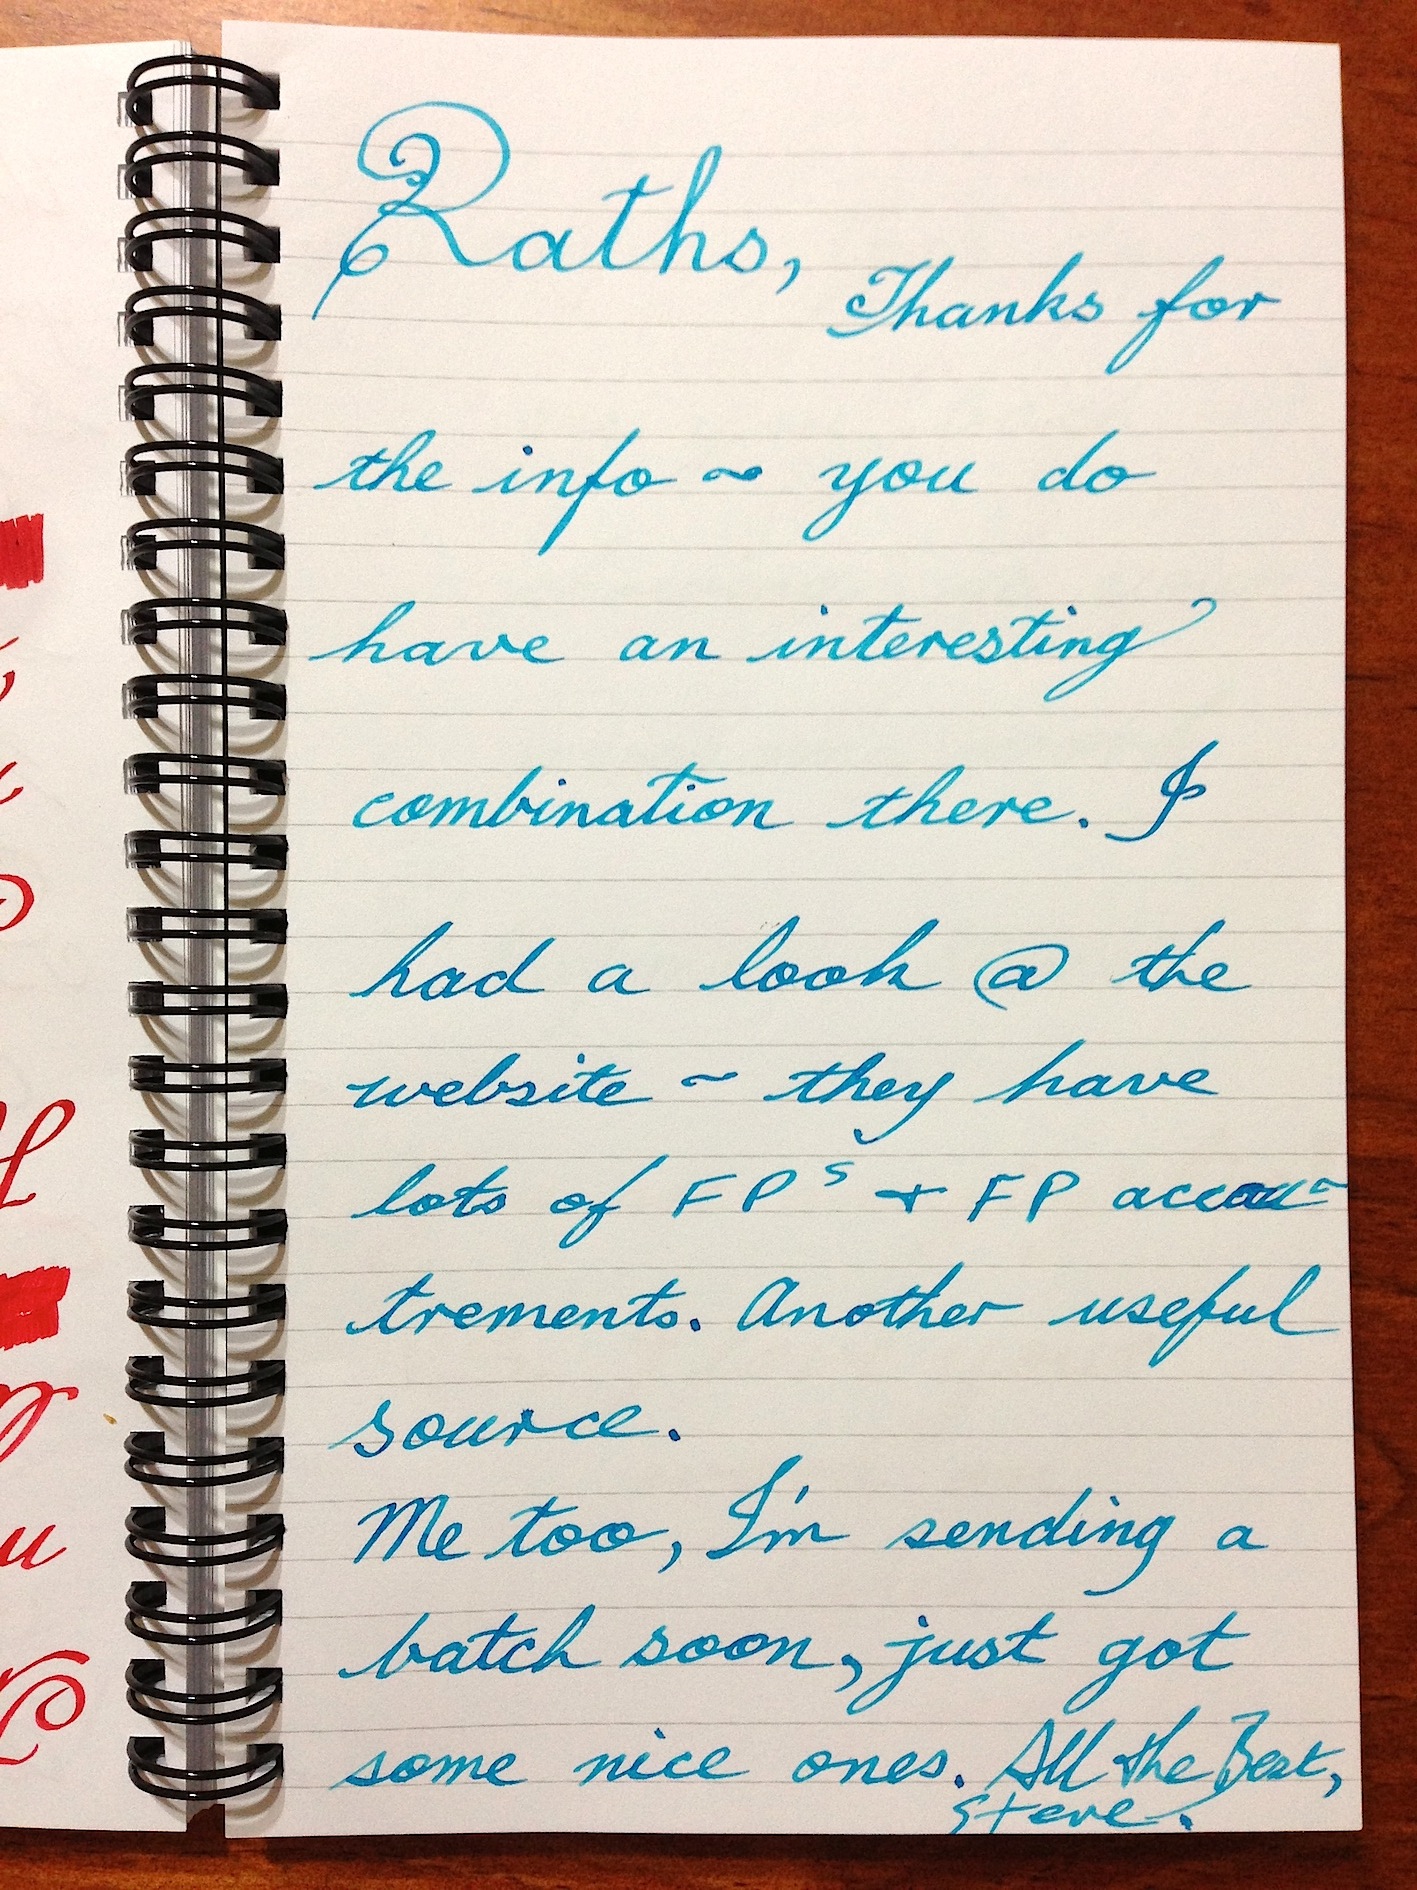 Raths,
Thanks for
the info ~ you do
have an interesting
combination there. I
had a look @ the
website ~ they have
lots of FPs + FP accou-
trements. Another useful
source.
Me too, I'm sending a
batch soon, just got
some nice ones. All the Best,
Steve.